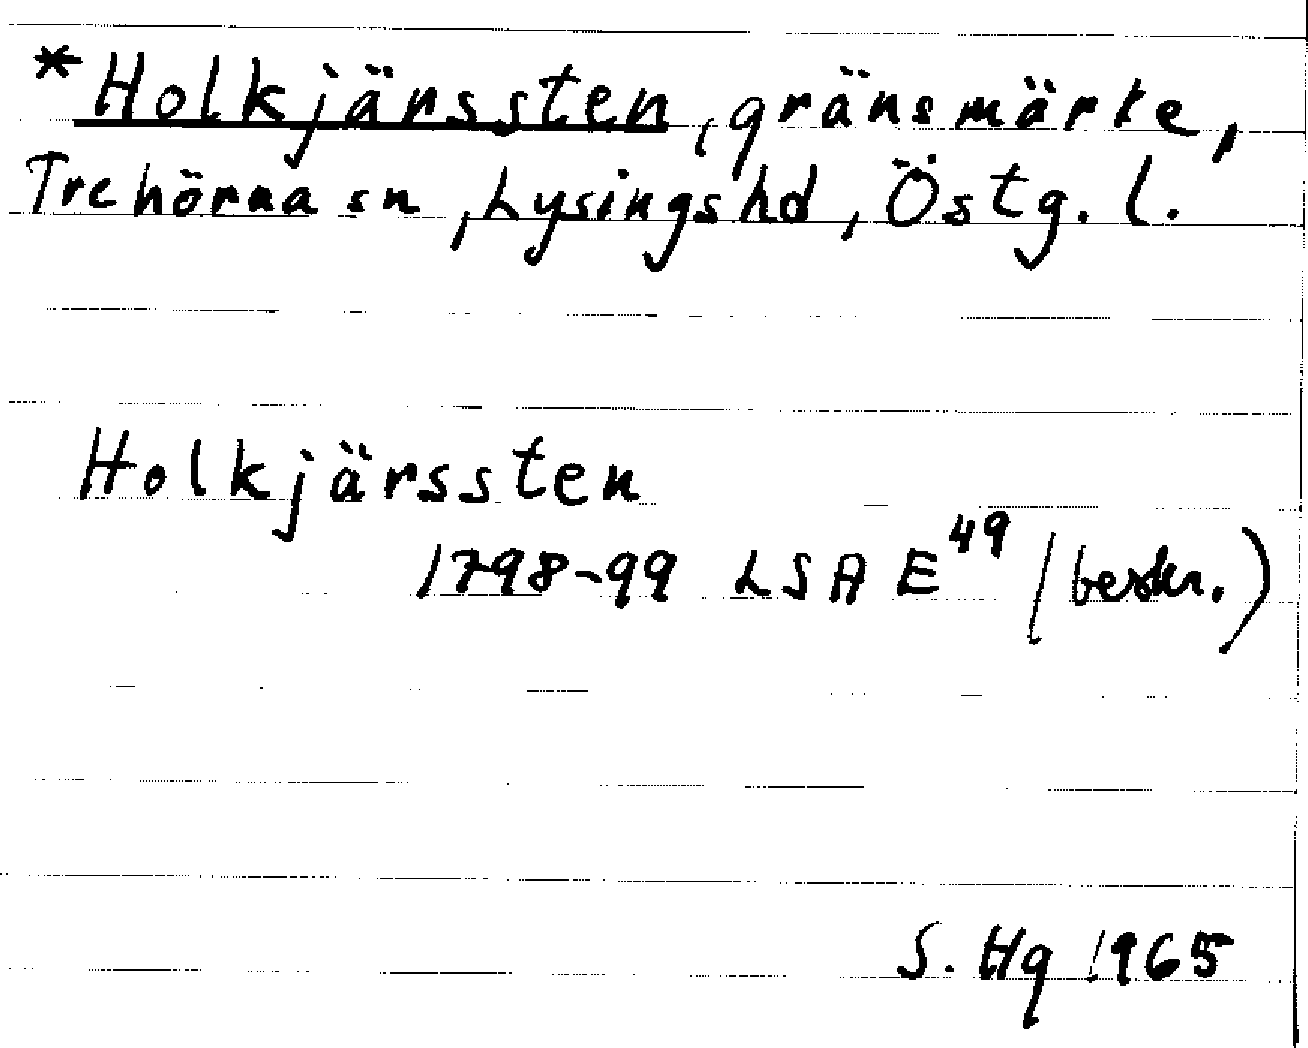 *Holkjärssten, gränsmärke,
Trehörna sn, Lysings hd, Östg. l.
Holkjärssten
1798-99 LSA E49 (beskr.)
S. Hg 1965